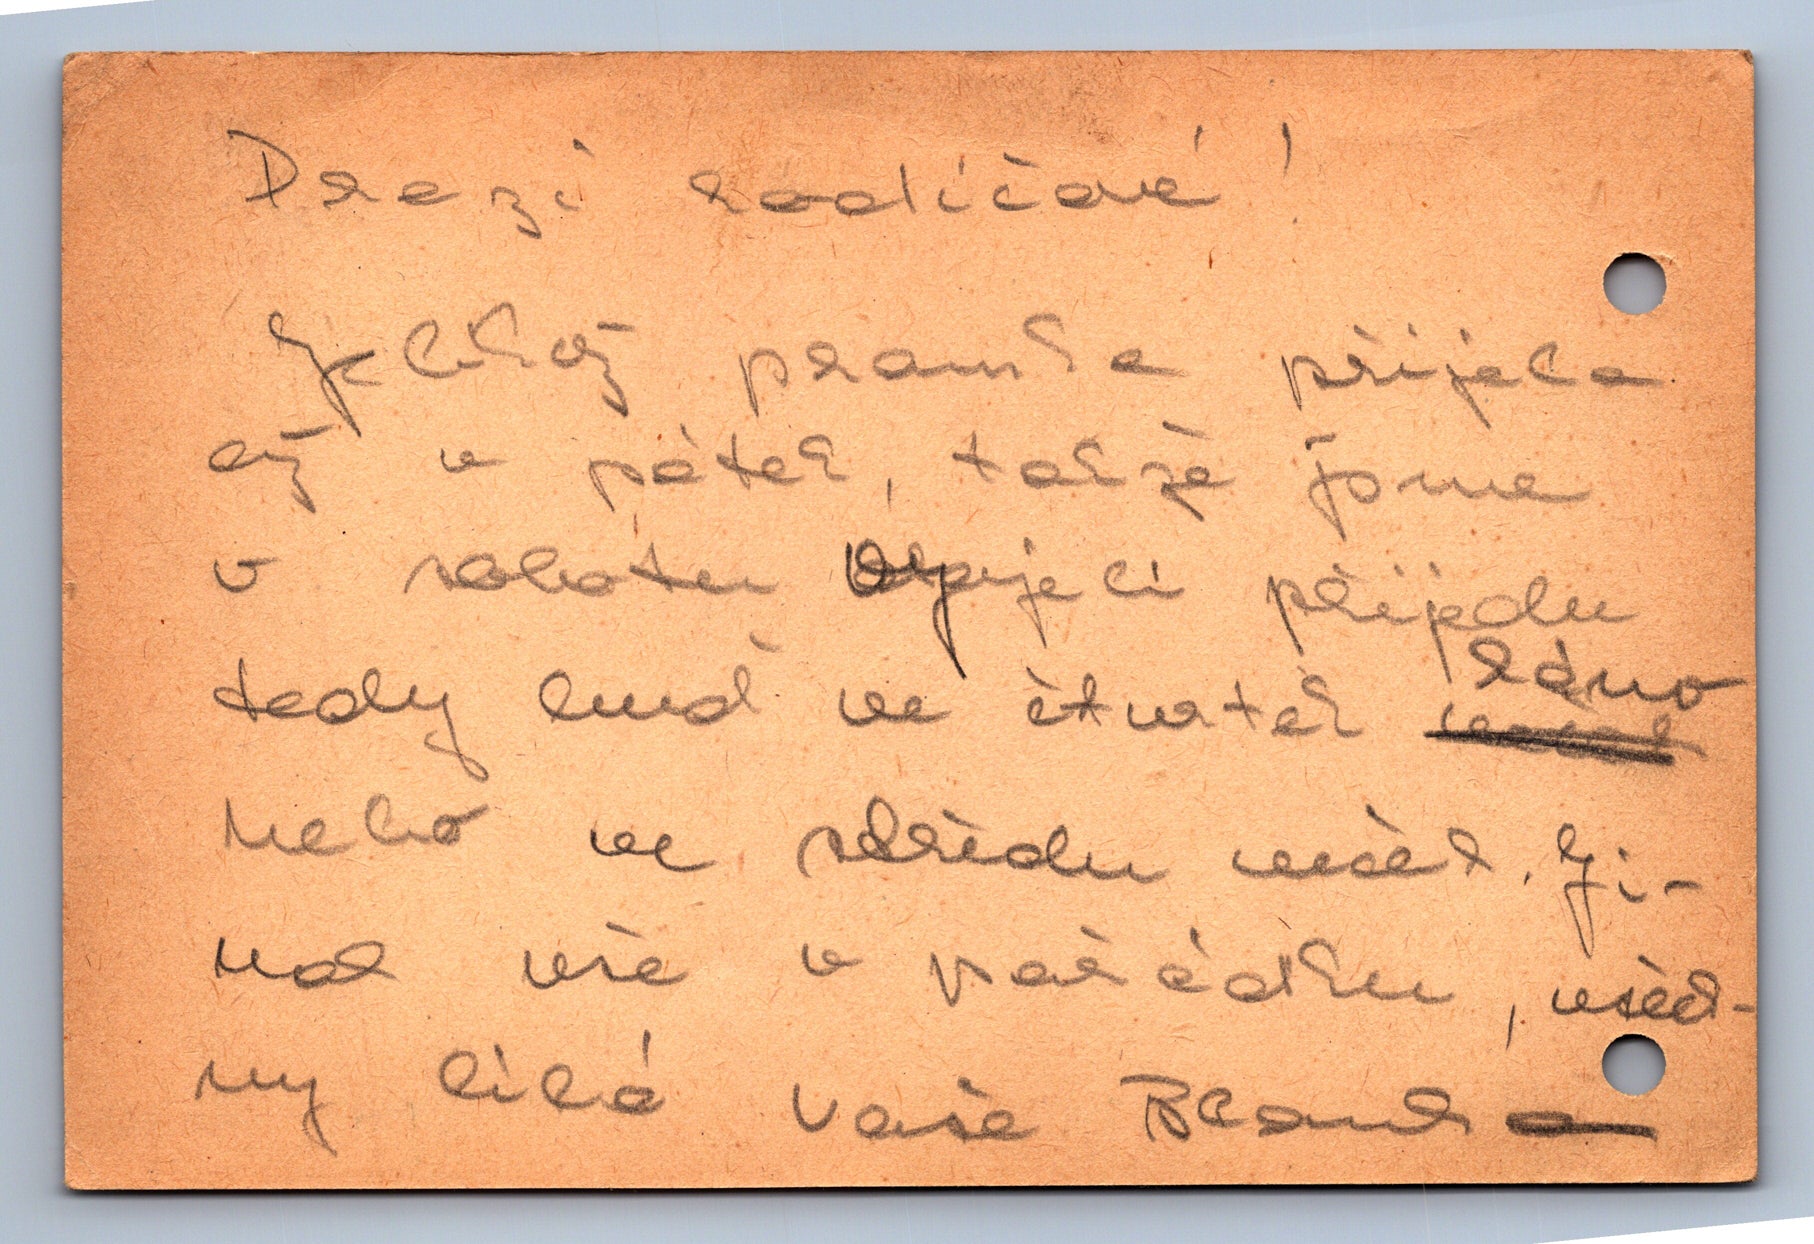 Drazí rodičové!
Jelikož pramka přijela
až v pátek, takže jsme
v sobotu přijedu
tedy buď ve čtvrtek ráno
nebo ve středu večer. Ji-
nak vše v pořádku, všech-
ny líbá Vaše Blanka